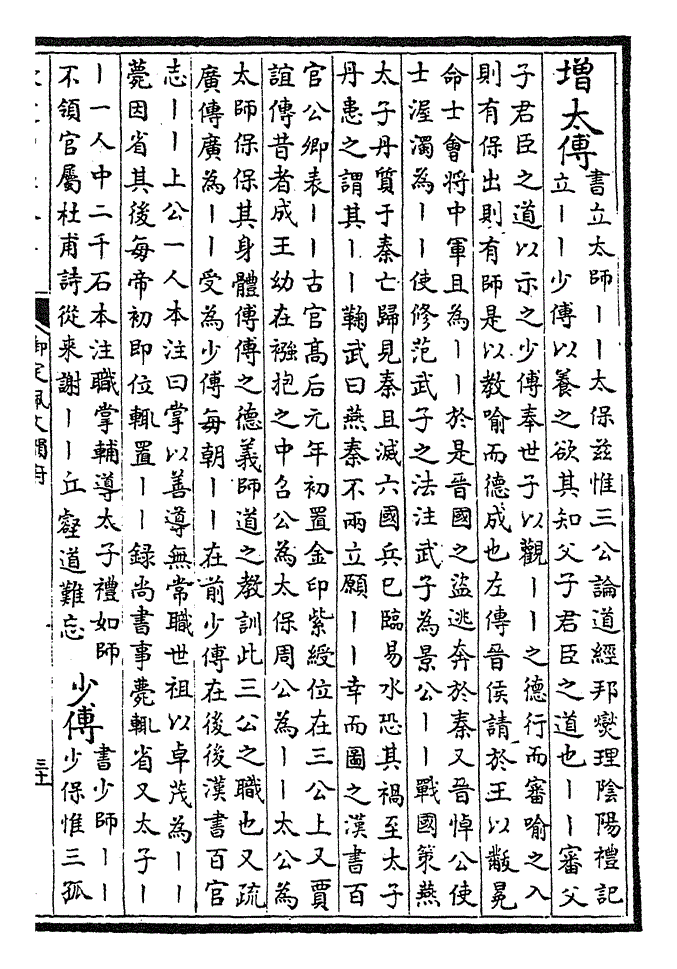 增太傅
書立太師丨丨太保兹惟三公論道經邦燮理陰陽禮記
立丨丨少傅以養之欲其知父子君臣之道也丨丨審父
子君臣之道以示之少傅奉世子以觀丨丨之德行而審喻之入
則有保出則有師是以教喻而德成也左傳晉侯請於王以黻冕
命士會將中軍且為丨丨於是晉國之盜逃奔於秦又晉悼公使
士渥濁為丨丨使修范武子之法注武子為景公丨丨戰國策燕
太子丹質于秦亡歸見秦且滅六國兵已臨易水恐其禍至太子
丹患之謂其丨丨鞠武曰燕秦不兩立願丨丨幸而圖之漢書百
官公卿表丨丨古官高后元年初置金印紫綬位在三公上又賈
誼傳昔者成王幼在襁抱之中召公為太保周公為丨丨太公為
太師保保其身體傅傅之德義師道之教訓此三公之職也又疏
廣傳廣為丨丨受為少傅每朝丨丨在前少傅在後後漢書百官
志丨丨上公一人本注曰掌以善導無常職世祖以卓茂為丨丨
薨因省其後每帝初即位輒置丨丨録尚書事薨輒省又太子丨
丨一人中二千石本注職掌輔導太子禮如師
不領官屬杜甫詩從來謝丨丨丘壑道難忘
少傅
書少師丨丨
少保惟三孤
御定佩文韻府